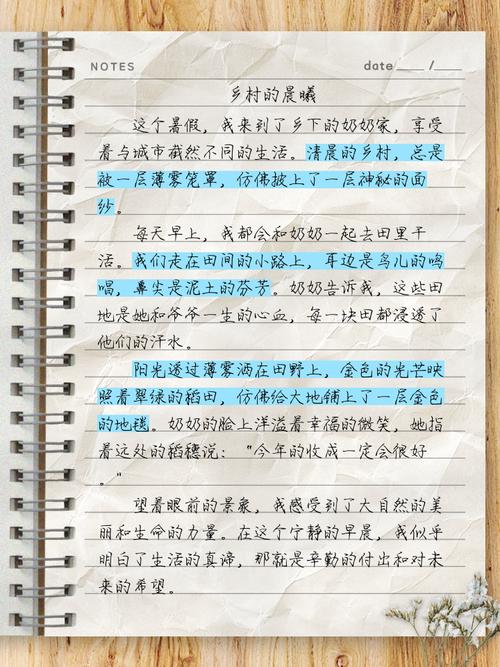 NOTES
date /
乡村的晨曦
这个暑假，我来到了乡下的奶奶家，享受
着与城市截然不同的生活。清晨的乡村，总是
被一层薄雾笼罩，仿佛披上了一层神秘的面
纱。
每天早上，我都会和奶奶一起去田里干
活。我们走在田间的小路上，耳边是鸟儿的鸣
唱，鼻尖是泥土的芬芳。奶奶告诉我，这些田
地是她和爷爷一生的心血，每一块田都浸透了
他们的汗水。
阳光透过薄雾洒在田野上，金色的光芒映
照着翠绿的稻田，仿佛给大地铺上了一层金色
的地毯。奶奶的脸上洋溢着幸福的微笑，她指
着远处的稻穗说："今年的收成一定会很好
。"
望着眼前的景象，我感受到了大自然的美
丽和生命的力量。在这个宁静的早晨，我似乎
明白了生活的真谛，那就是辛勤的付出和对未
来的希望。